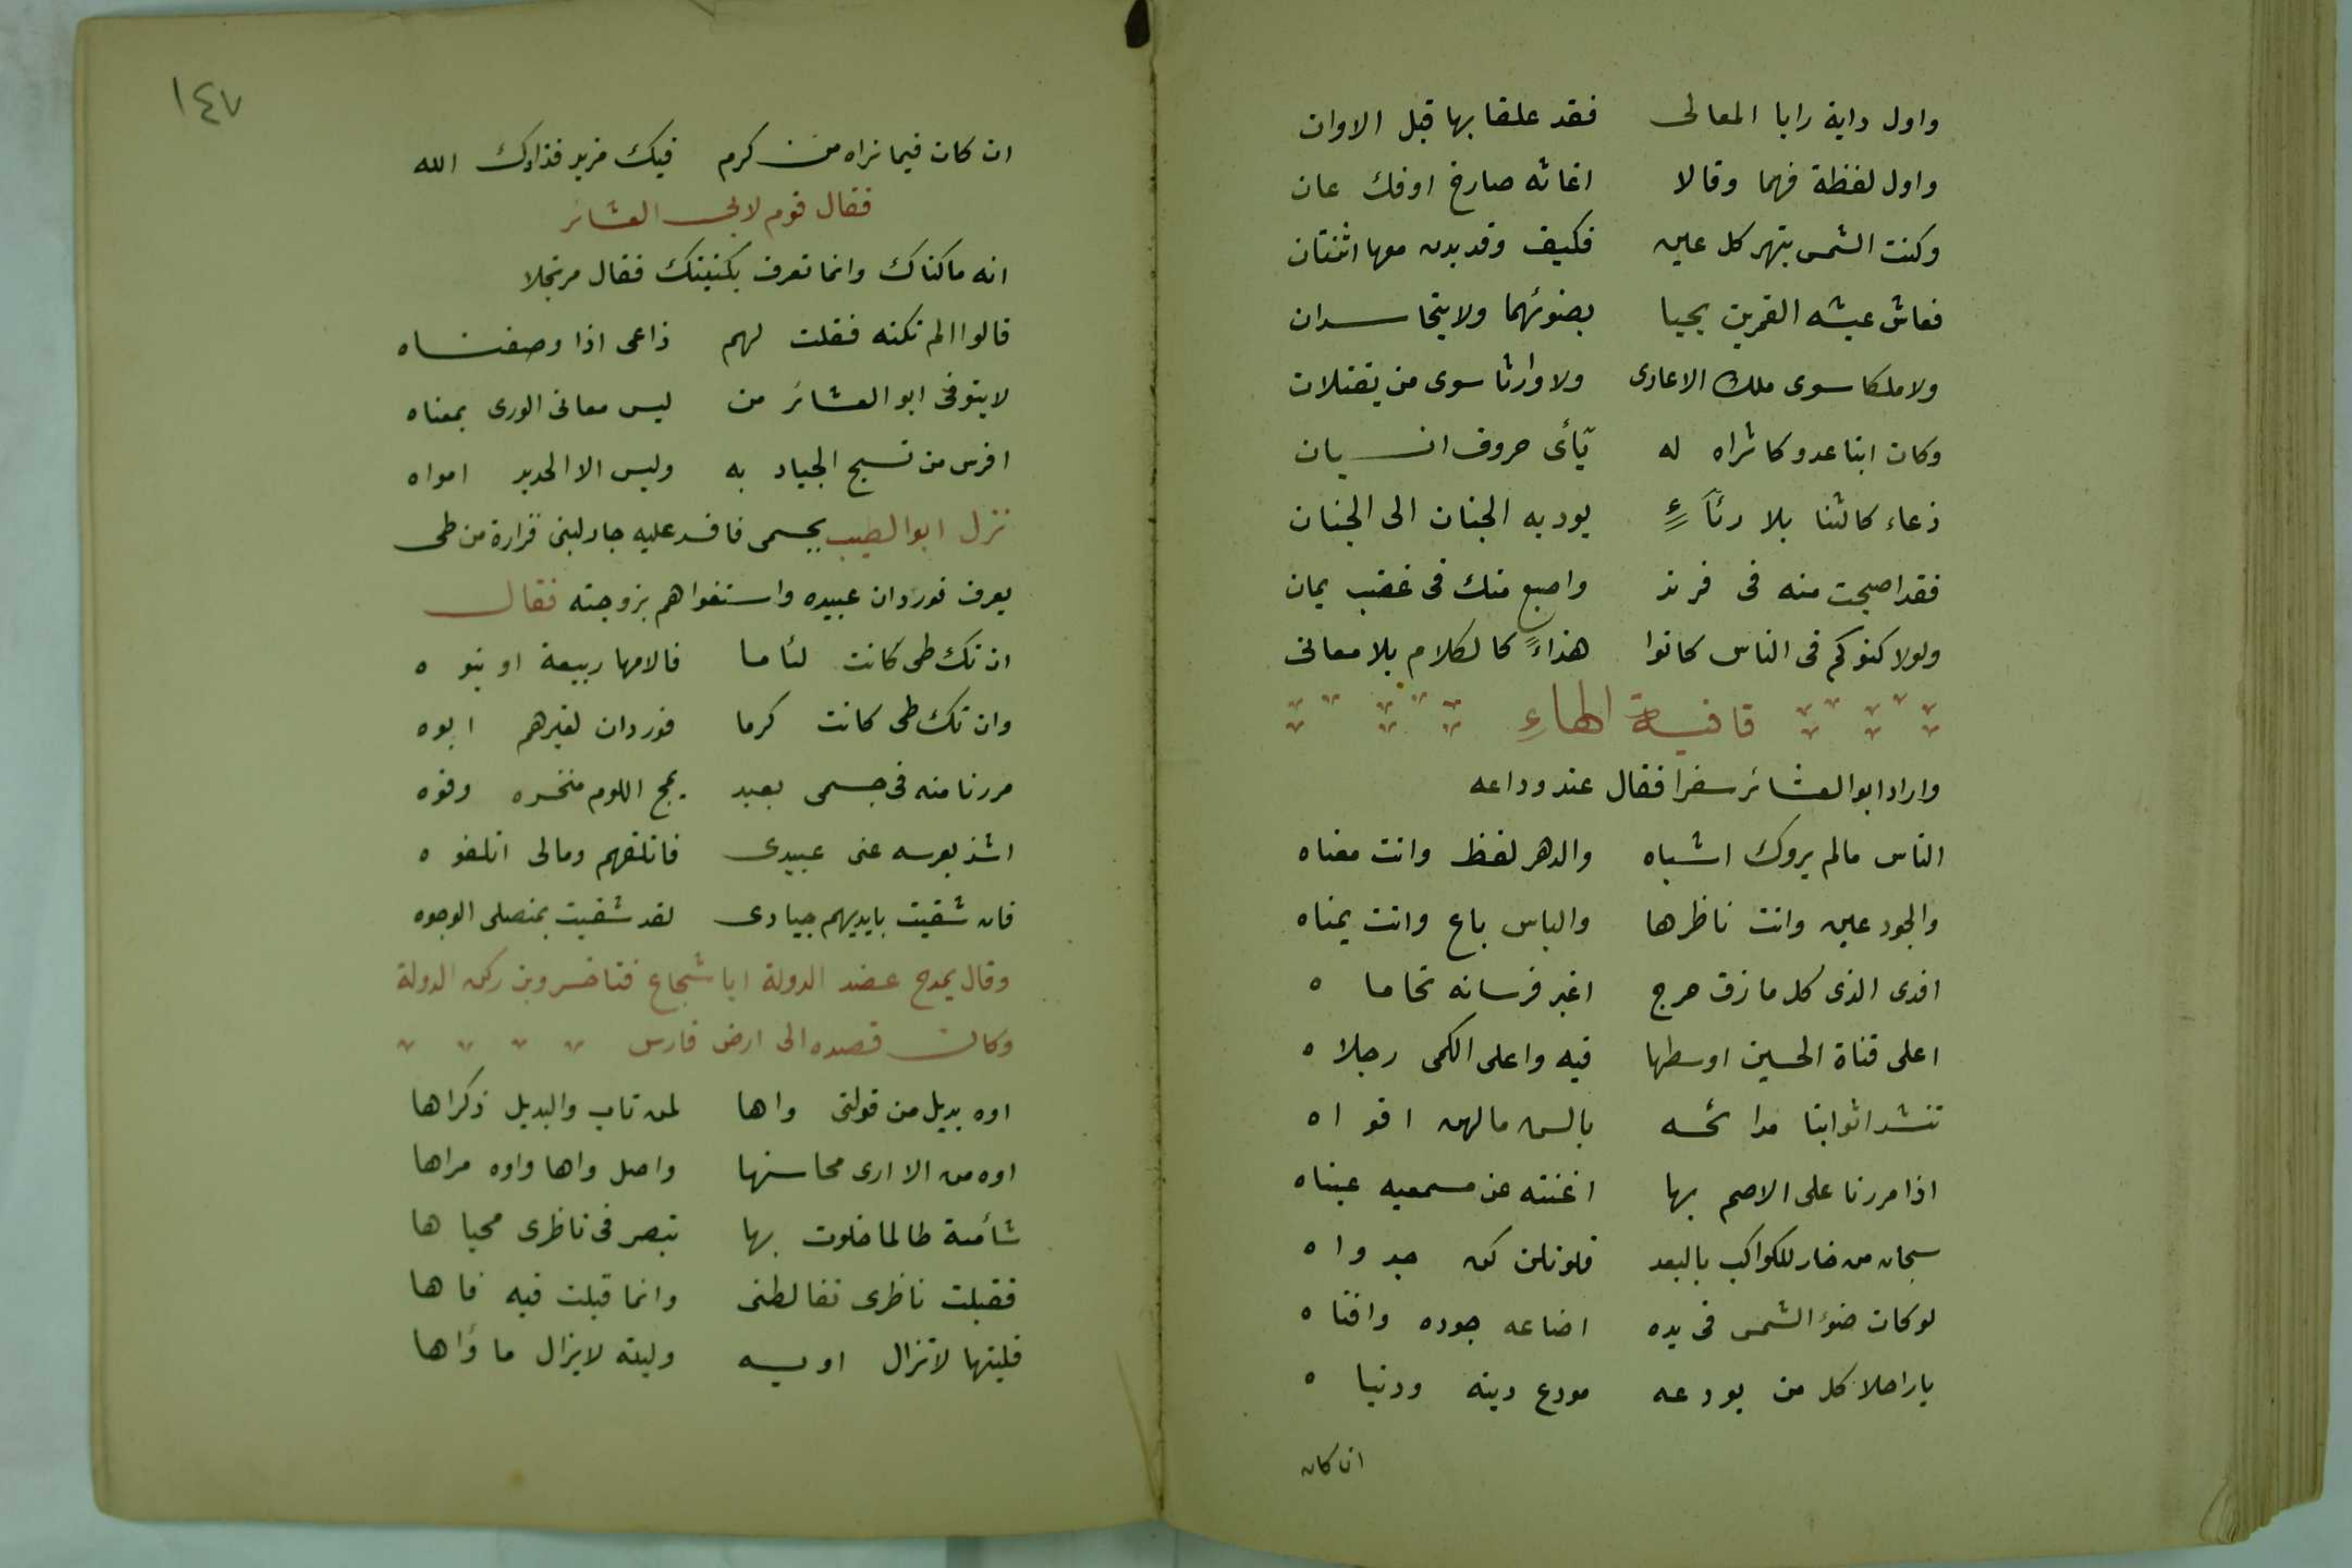 واول داية رايا المعالى فقد علقا بها قبل الاوان
واول لفظة فهما وقالا اغاثه صارخ اوفك عان
وكنت الشمس تبهر كل عين فكيف وقد بدت معها اثنتان
فعاش عيشه القمرين يحيا بضوئهما ولا يتحاسدان
ولا ملكا سوى ملك الاعادى ولا وارثا سوى من يقتلان
وكان ابنا عدو كاثراه له يأى حروف انسيان
دعاء كالثنا بلا رئاء يوديه الجنان الى الجنان
فقد اصبحت منه فى فرند واصبح منك فى عضب يمان
ولولا كنوكم فى الناس كانوا هذاء كالكلام بلا معانى
قافية الهاء
واراد ابوالعشائر سفرا فقال عند وداعه
الناس مالم يروك اشباه والدهر لفظ وانت معناه
والجود عين وانت ناظرها والباس باع وانت يمناه
افدى الذى كل مازق حرج اغبر فرسانه تحاماه
اعلى قناة الحسين اوسطها فيه واعلى الكمى رجلاه
تنشد اثوابنا مدائحه بالسن مالهن افواه
اذا مررنا على الاصم بها اغنته عن مسمعيه عيناه
سبحان من خار للكواكب بالبعد فلونلن كن جدواه
لوكان ضوء الشمس فى يده اضاعه جوده وافناه
ياراحلا كل من يودعه مودع دينه ودنياه
ان كان
١٤٧
ان كان فيما نراه من كرم فيك مزيد فزادك الله
فقال قوم لابى العشائر
انه ماكناك وانما تعرف بكنيتك فقال مرتجلا
قالوا الم تكنه فقلت لهم ذاعى اذا وصفناه
لا يتوفى ابو العشائر من ليس معانى الورى بمعناه
افرس من تسبح الجياد به وليس الا الحديد امواه
نزل ابوالطيب بحسمى فافسد عليه جار لبنى فزارة من طى
يعرف بوردان عبيده واستغواهم بزوجته فقال
ان تك طى كانت لئاما فالامها ربيعة او بنوه
وان تك طى كانت كرما فوردان لغيرهم ابوه
مررنا منه فى حسمى بعبد يمج اللوم منخره وفوه
اشذ بعرسه عنى عبيدى فاتلفهم ومالى اتلفوه
فان شقيت بايديهم جيادى لقد شقيت بمنصلى الوجوه
وقال يمدح عضد الدولة ابا شجاع فناخسروبن ركن الدولة
وكان قصده الى ارض فارس
اوه بديل من قولتى واها لمن نات والبديل ذكراها
اوه من الا ارى محاسنها واصل واها واوه مراها
شأمية طالما خلوت بها تبصر فى ناظرى محياها
فقبلت ناظرى تغالطنى وانما قبلت فيه فاها
فليتها لا تزال اويه وليته لا يزال ماؤاها